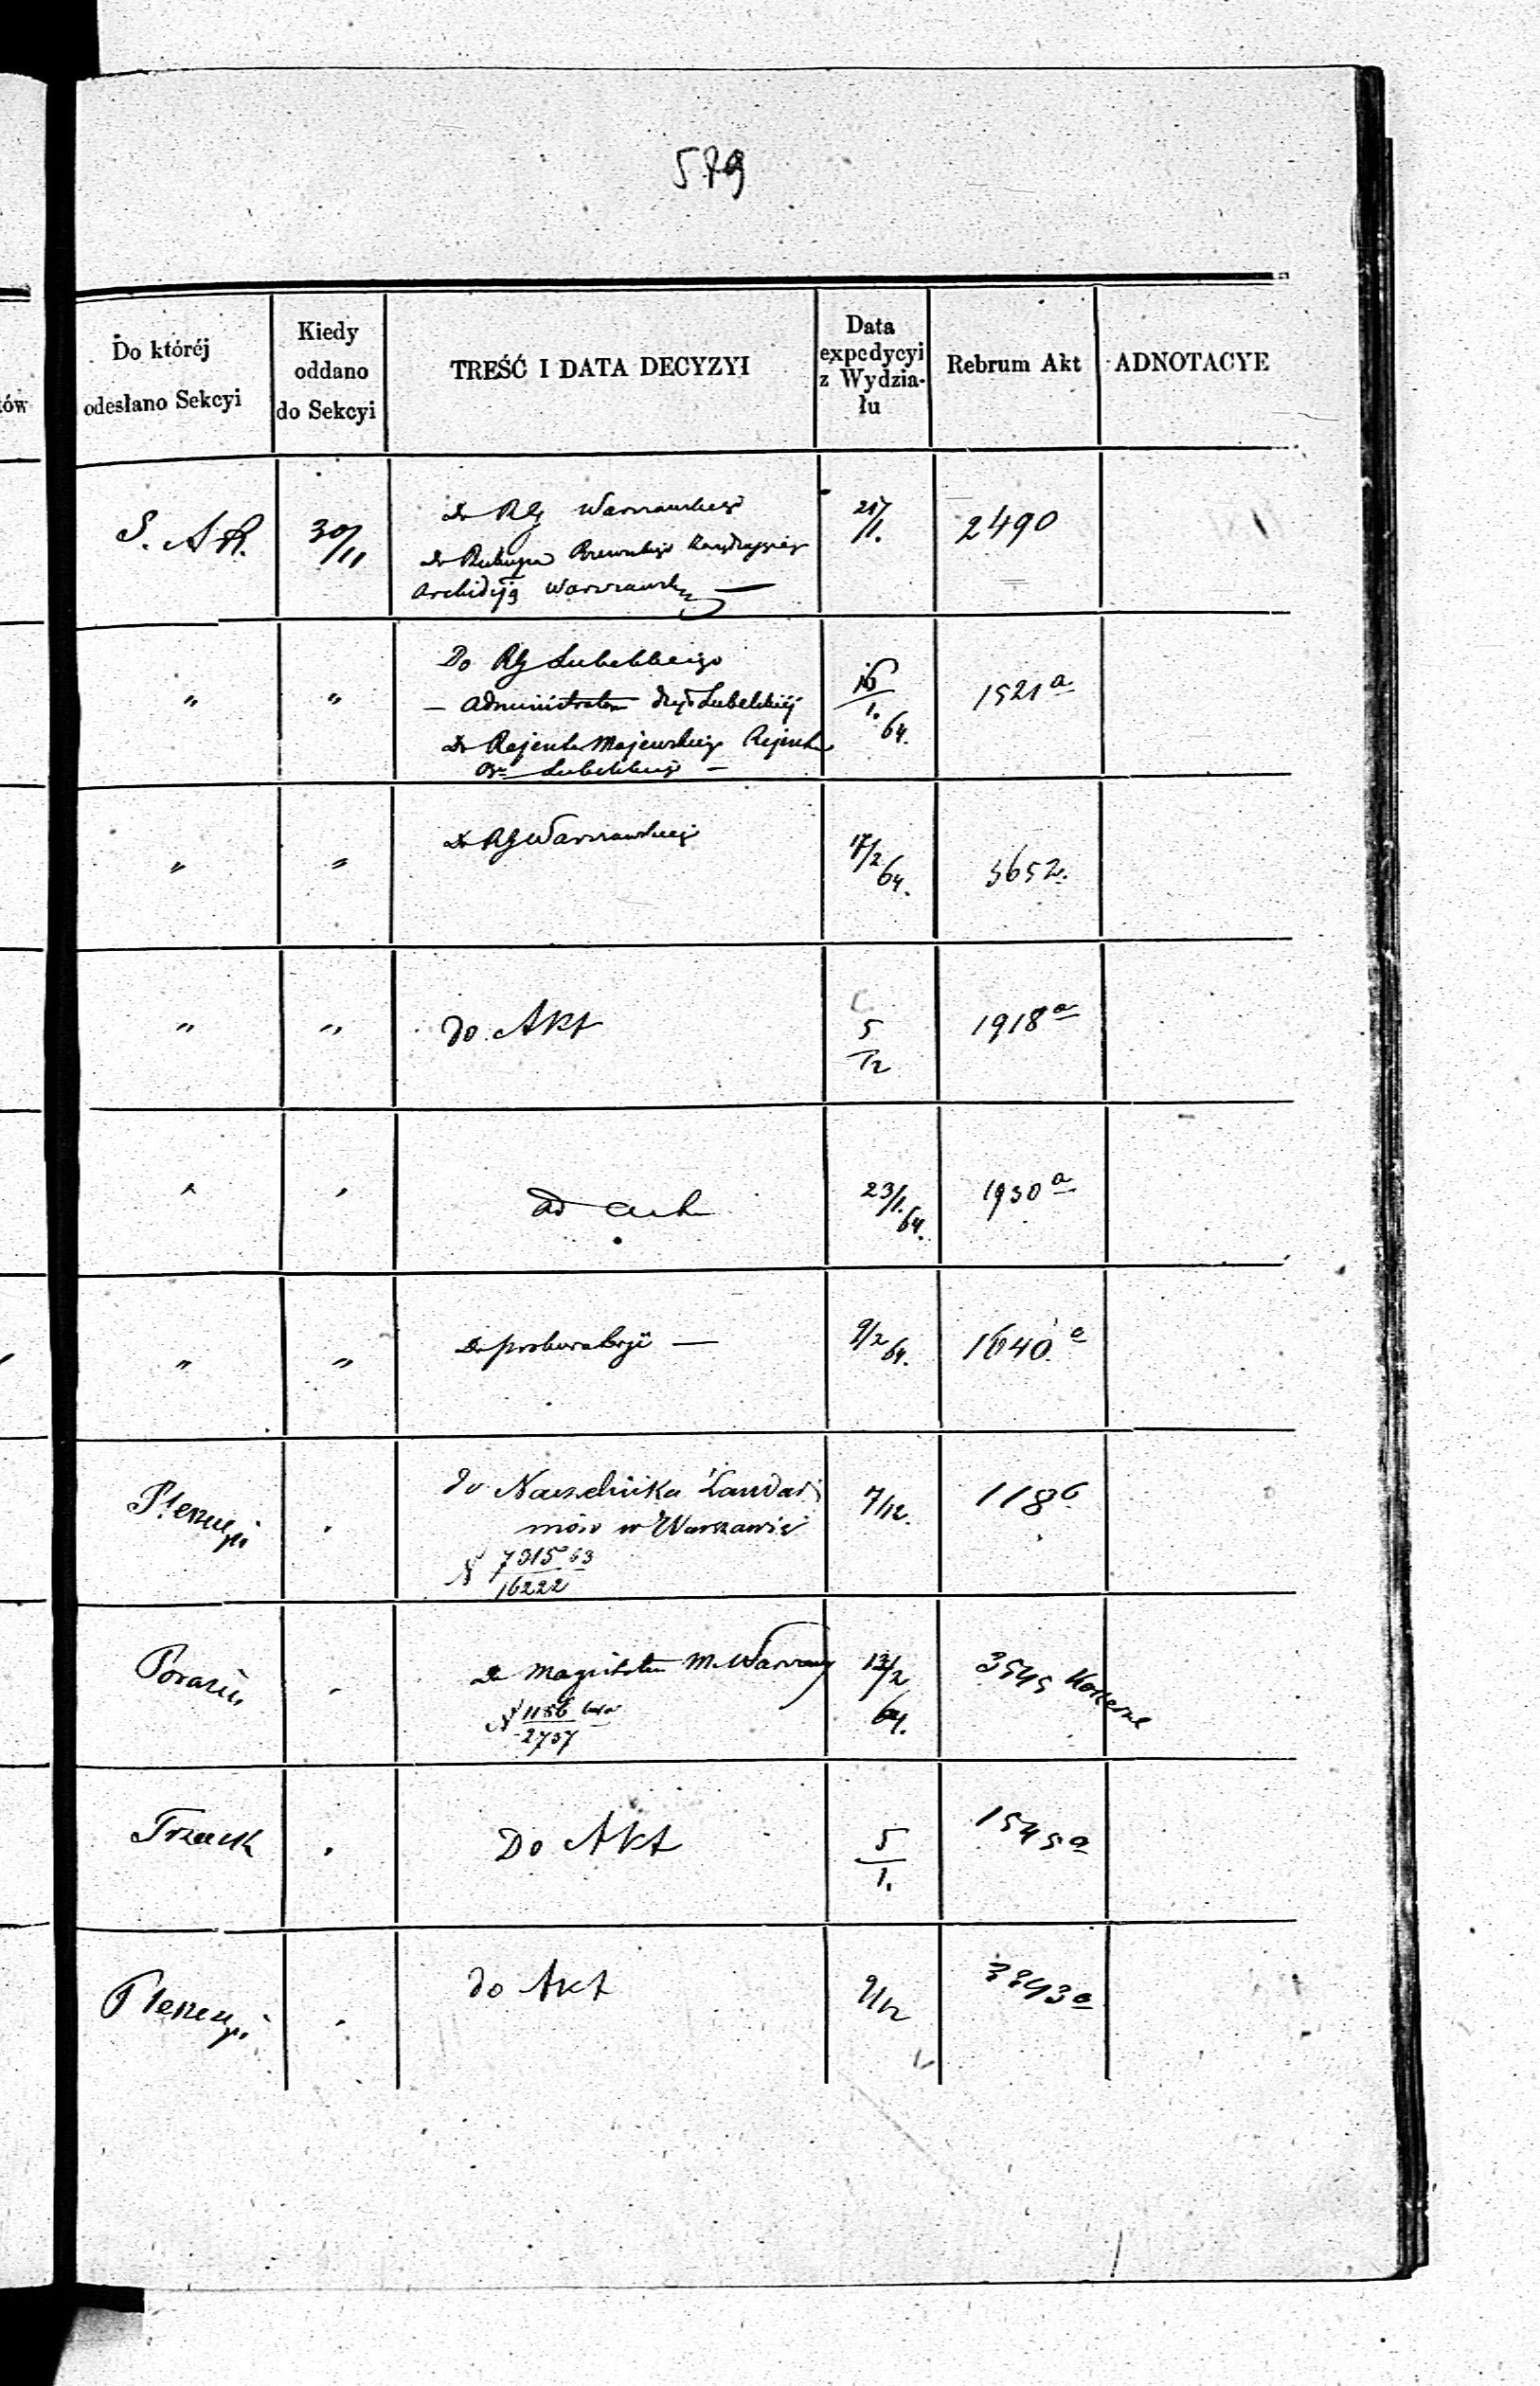 579
Do któréj
odesłano Sekcyi
Kiedy
oddano
do Sekcyi
TREŚĆ I DATA DECYZYI
Data
expedycyi
z Wydzia-
łu
Rebrum Akt
ADNOTACYE
ów
S. A R.
30/11
Do RG Warszawskiego
Do Biskupa
Archidyą Warszawsk
/1.
2490
"
"
Do RG Lubelskiego
— Administratora Dyą Lubelskiéj
Do Rejenta Majewskiego Rejenta
Lubelskiego —
16/1. 64.
1521 a
"
"
Do RG Warszawskiego
17/2 64.
3652.
"
"
do Akt
5/12
1918 a
"
"
ad acta
23/1. 64.
1930 a
"
"
Do prokuratoryi —
9/2 64.
1640. a
"
do Naczelnika Żandar
mów w Warszawie
N 7315 63/16222
7/12.
118 b
"
Do Magistratu M. Warszawy
N 1186/2757
13/2 64.
3545
"
Do Akt
5/1.
1545 a
"
do Akt
9/12
3893 a